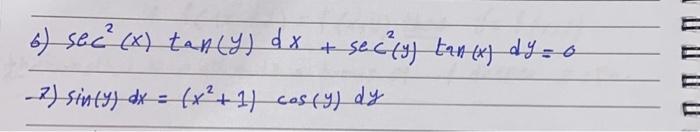 6) sec²(x) tan(y) dx + sec²(y) tan(x) dy = 0
-7) sin(y) dx = (x²+1) cos(y) dy